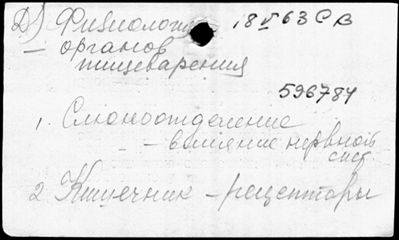 Д) Физиология 18 V 63 СВ
— органов
пищеварения
596784
1. Слюноотделение
— влияние нервной
сист.
2 Кишечник — рецепторы